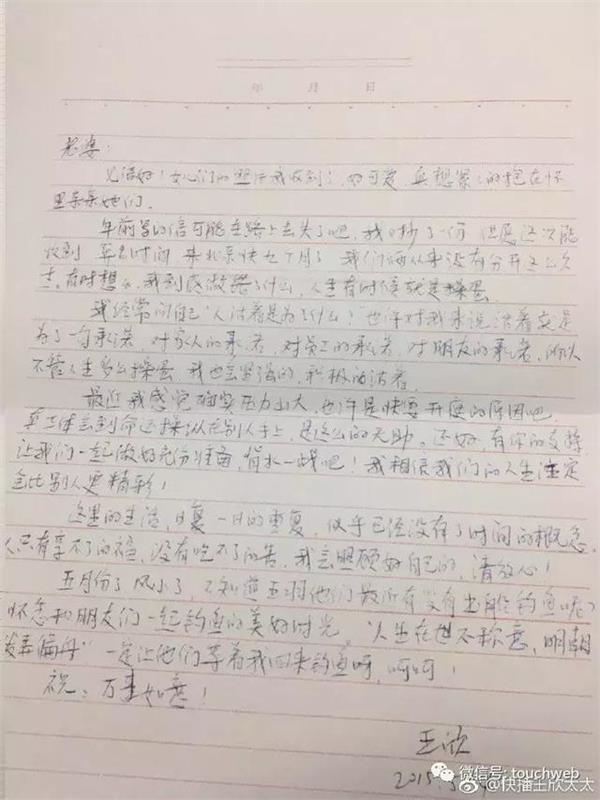 年 月 日
老婆:
见信好!女儿们的照片我收到了,好可爱,真想紧紧的抱在怀
里亲亲她们。
年前写的信可能在路上丢失了吧,我又抄了一份,但愿这次能
收到。算算时间,来北京快七个月了,我们俩从来没有分开这么久
过。有时想想,我到底做错了什么,人生有时候就是操蛋。
我经常问自己"人活着是为了什么?"也许对我来说活着就是
为了一句承诺,对家人的承诺,对员工的承诺,对朋友的承诺,所以
不管人生多么操蛋,我也会坚强的,积极的活着。
最近我感觉确实压力山大,也许是快要开庭的原因吧,
真正体会到命运操纵在别人手上,是这么的无助。还好有你的支持,
让我们一起做好充分准备,背水一战吧!我相信我们的人生注定
会比别人更精彩!
这里的生活,日复一日的重复,似乎已经没有了时间的概念。
人只有享不了的福,没有吃不了的苦,我会照顾好自己的,请放心!
五月份了,风小了,不知道 他们最近有没有出船钓鱼呢?
怀念和朋友们一起钓鱼的美好时光。"人生在世不称意,明朝
散弄扁舟"一定让他们等着我回来钓鱼呀,呵呵!
祝:万事如意!
王欣
2015.5
微信号: touchweb
@快播王欣太太